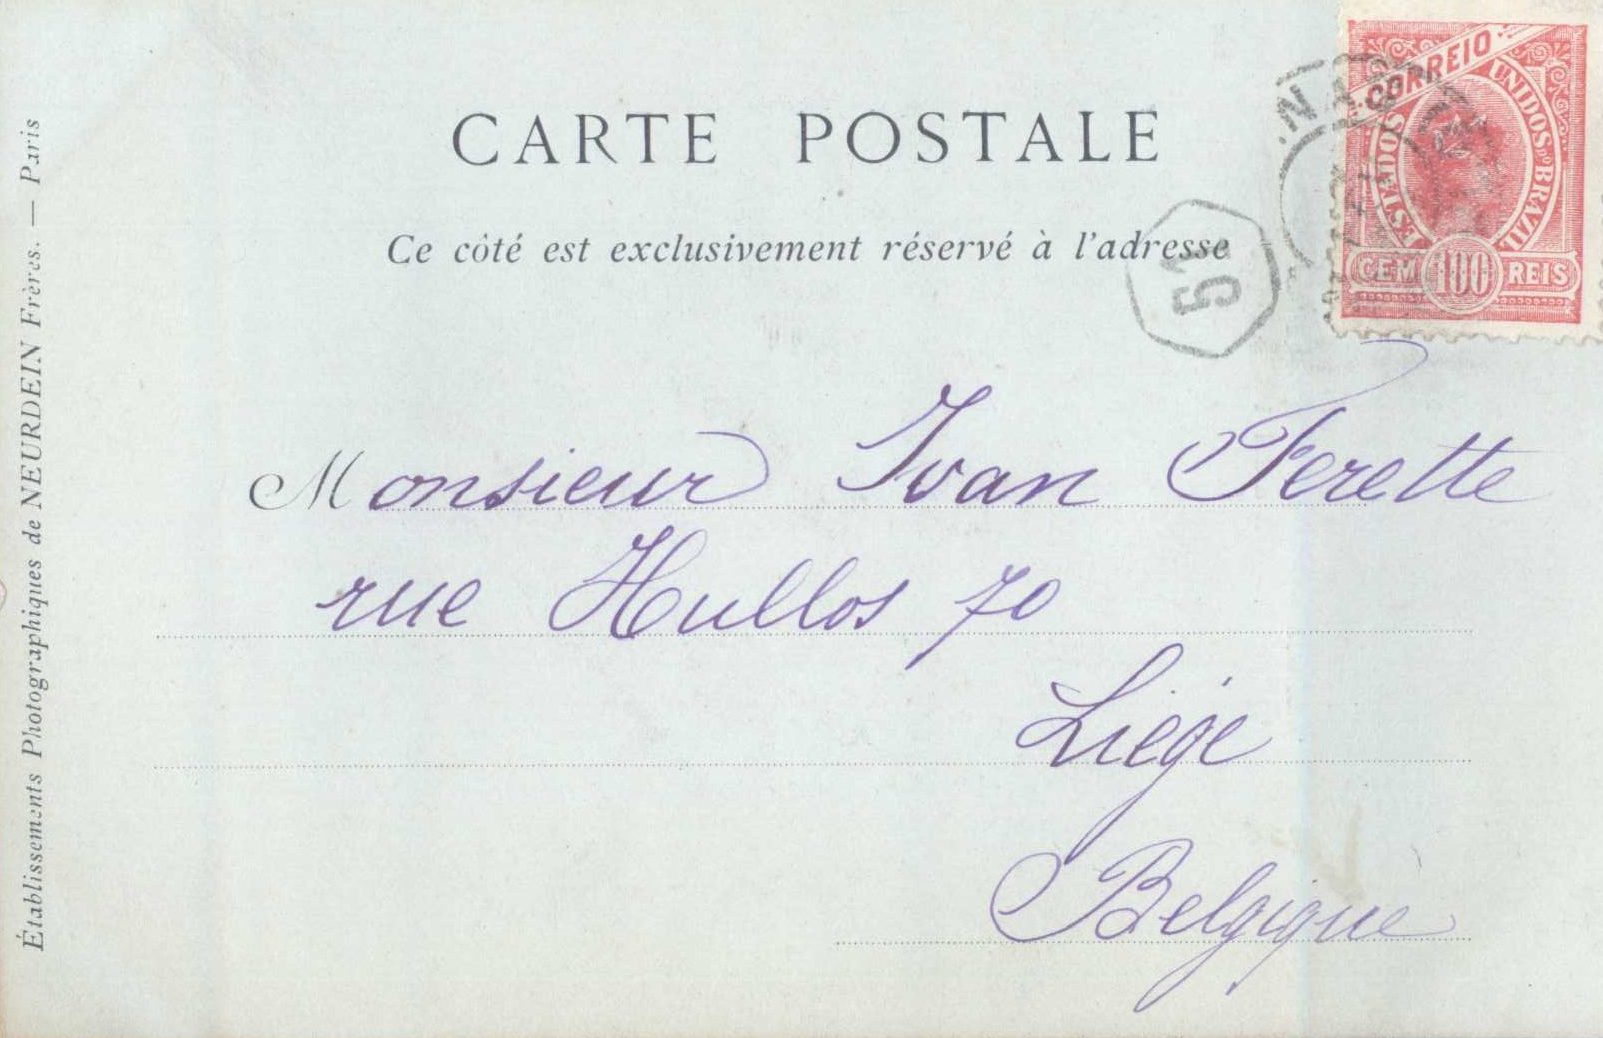 CARTE POSTALE
Ce côté est exclusivement réservé à l'adresse
CORREIO
ESTADOS UNIDOS DO BRAZIL
CEM 100 REIS
51
Monsieur Ivan Ferette
rue Hullos 70
Liége
Belgique
Établissements Photographiques de NEURDEIN Frères. — Paris